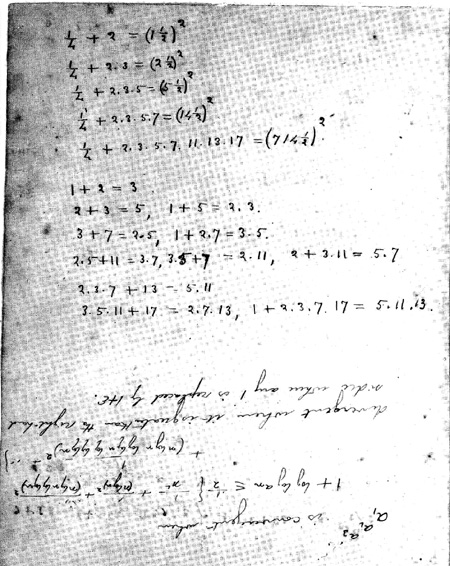 1/4 + 2 = (1 1/2)²
1/4 + 2.3 = (2 1/2)²
1/4 + 2.3.5 = (5 1/2)²
1/4 + 2.3.5.7 = (14 1/2)²
1/4 + 2.3.5.7.11.13.17 = (714 1/2)²
1 + 2 = 3
2 + 3 = 5, 1 + 5 = 2.3.
3 + 7 = 2.5, 1 + 2.7 = 3.5.
2.5 + 11 = 3.7, 3.5 + 7 = 2.11, 2 + 3.11 = 5.7
2.3.7 + 13 = 5.11
3.5.11 + 17 = 2.7.13, 1 + 2.3.7.17 = 5.11.13.
is convergent when
1 + log log an ≤
divergent when it is greater than the right hand
side when any 1 is replaced by 1+ε.